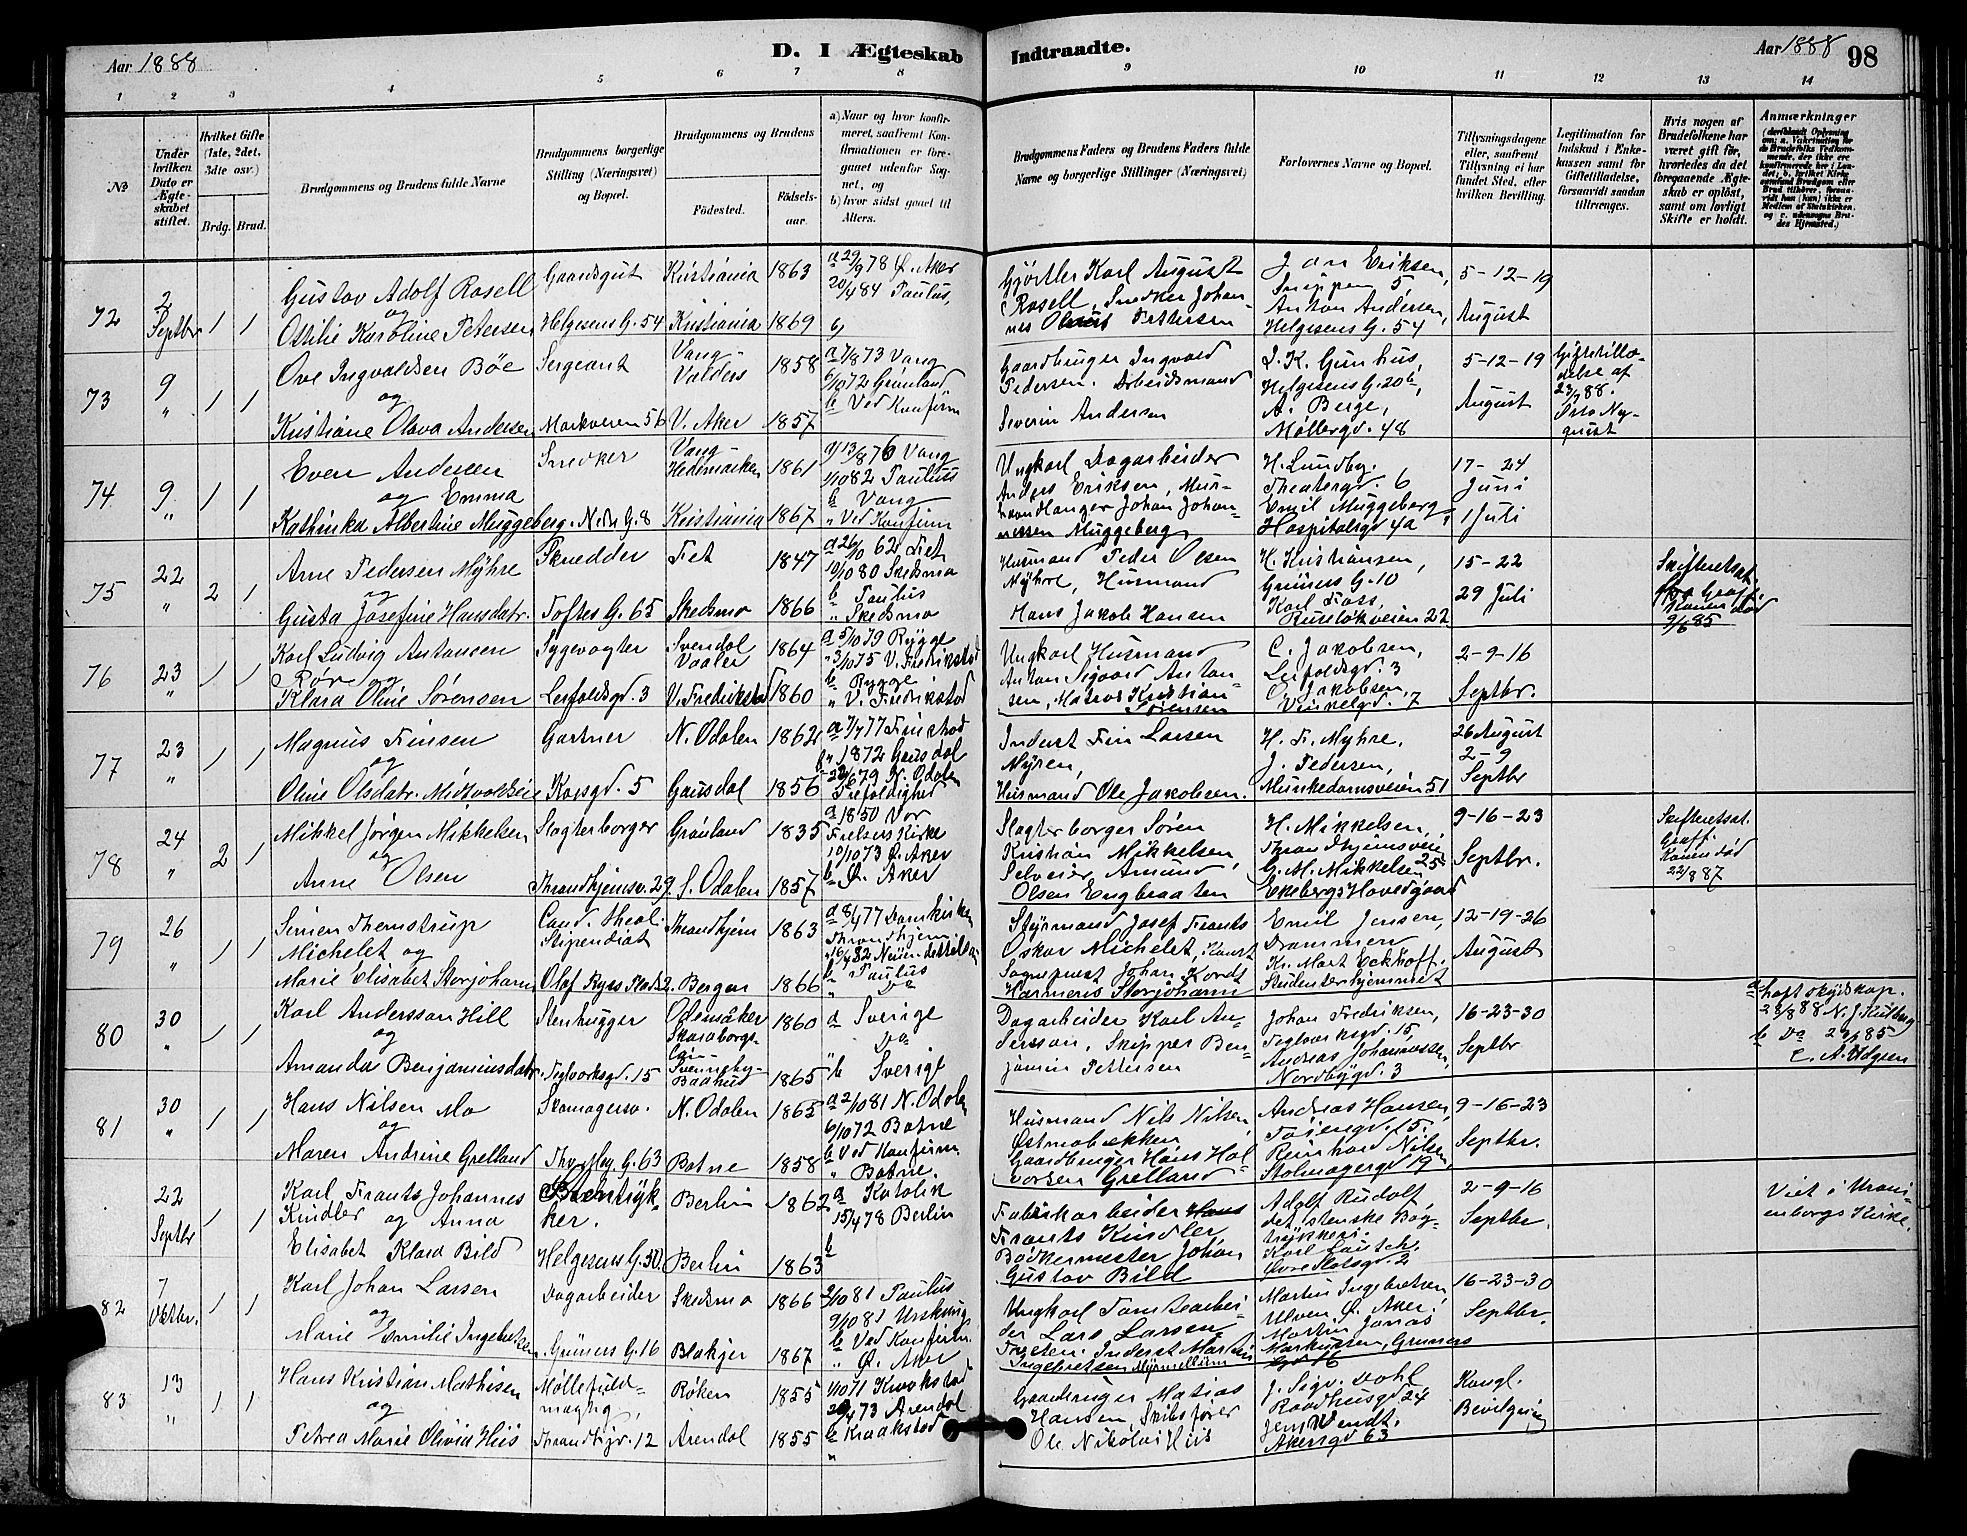 Aar 1888
D. I Ægteskab Indtraadte.
Aar 1888 98
1 2 3 4 5 6 7 8 9 10 11 12 13 14
No
Under hvilken Dato er Ægteskabet stiftet.
Hvilket Gifte (1ste, 2det, 3die osv.)
Brdg. Brud.
Brudgommens og Brudens fulde Navne
Brudgommens borgerlige Stilling (Næringsvei) og Bopæl.
Brudgommens og Brudens
Födested.
Födselsaar.
a) Naar og hvor konfirmeret, saafremt Konfirmationen er foregaaet udenfor Sognet, og
b) hvor sidst gaaet til Alters.
Brudgommens Faders og Brudens Faders fulde Navne og borgerlige Stillinger (Næringsvei)
Forlovernes Navne og Bopæl.
Tillysningsdagene eller, saafremt Tillysning ei har fundet Sted, efter hvilken Bevilling.
Legitimation for Indskud i Enkekassen samt for Giftetilladelse, forsaavidt saadan tiltrænges.
Hvis nogen af Brudefolkene har været gift før, hvorledes da det foregaaende Ægteskab er oplöst, samt om lovligt Skifte er holdt.
Anmærkninger
72 2 Septbr 1 1
Gustav Adolf Rosell
og
Ottilie Karoline Petersen
Gaardsgut
Helgesens G. 54
Kristiania 1863
Kristiania 1869
a 29/9 78 Ø. Aker
20/4 84 Paulus,
b
Gjørtler Karl August
Rosell, Snedker Johannes
Pettersen
Jan Eriksen,
5,
Anton Andersen,
Helgesens G. 54
5-12-19
August
73 9 " 1 1
Ove Ingvaldsen Bøe
og
Kristiane Olava Andersen
Sergeant
Markveien 56
Vang - Valders 1858
V. Aker 1857
a 7/8 73 Vang
6/10 72 Grønland
b Ved Konfirm
Gaardbruger Ingvald
Pedersen. Arbeidsmand
Severin Andersen
I. K. Gunhus,
Helgesens G. 20 b,
A. Berge,
Møllergd. 48
5-12-19
August
Giftetilladelse af
23/7 88.
Nyquist
74 9 " 1 1
Even Andersen
og Emma
Kathinka Albertine Muggeberg.
Snedker
N. G. 8
Vang - Hedemarken 1861
Kristiania 1867
13/8 76 Vang
1/10 82 Paulus
b Vang
" Ved Konfirm
Ungkarl Dagarbeider
Anders Eriksen, Murhaandlanger Johan Johannessen Muggeberg
H. Lundby.
Theatergd. 6
Emil Muggeberg
Hospitalsgd 4a
17-24
Juni
1 Juli
75 22 " 2 1
Arne Pedersen Myhre
og
Gusta Josefine Hansdatr.
Skrædder
Toftes G. 65
Fet 1847
Skedsmo 1866
a 26/10 62 Fet
10/10 80 Skedsmo
b Paulus
" Skedsmo
Husmand Peder Olsen
Myhre, Husmand
Hans Jakob Hansen
H. Kristiansen,
Grüners G. 10
Karl Foss,
Ruseløkveien 22
15-22
29 Juli
Skifteretsat.
fra Graff.
Konen død
9/6 85
76 23 " 1 1
Karl Ludvig Antonsen
og
Klara Oline Sørensen
Sygevogter
Leifoldsgd. 3
Svendal Vaaler 1864
V. Fredrikstad 1860
a 5/10 79 Rygge
" 3/10 75 V. Fredrikstad
b Rygge
" V. Fredrikstad
Ungkarl Husmand
Anton Sigvard Antonsen, Matros Kristian
Sørensen
C. Jakobsen,
Leifoldsgd. 3
O. Jakobsen,
Vinkelgd. 7
2-9-16
Septbr.
77 23 " 1 1
Magnus Finsen
og
Oline Olsdatr. Midtvoldseie
Gartner
Korsgd. 5
N. Odalen 1862
Gausdal 1856
" 1872 Gausdal
b 22/6 79 N. Odalen
Trefoldighed
Inderst Fin Larsen
Myren,
Husmand Ole Jakobsen.
H. F. Myhre,
J. Pedersen,
Munkedamsveien 51
26 August
2-9
Septbr
78 24 " 2 1
Mikkel Jørgen Mikkelsen
og
Anne Olsen
Slagterborger
Throndhjemsv. 29.
Grønland 1835
S. Odalen 1857
a 1850 Vor
Frelsers Kirke
10/10 73 Ø. Aker
b Ø. Aker
Slagterborger Søren
Kristian Mikkelsen,
Selveier Amund
Olsen Engbraaten
H. Mikkelsen,
Throndhjemsvei
G. M. Mikkelsen 25
Ekebergs Hovedgaard
9-16-23
Septbr.
Skifteretsat.
Graff.
Konen død
22/8 87
79 26 " 1 1
Simon Themstrup
Michelet og
Marie Elisabet Storjohann
Cand. theol.
Stipendiat
Olaf Ryes Plads 2.
Throndhjem 1863
Bergen 1866
a 8/4 77 Domkirken
Throndhjem
b Paulus
" Do
Styrmand Josef Frants
Oskar Michelet,
Sogneprest Johan Kordt
Harmens Storjohann
Emil Jensen,
Drammen
Kr. Mart. Eckhoff.
Studenterhjemmet
12-19-26
August
80 30 " 1 1
Karl Andersson Hill
og
Amanda Benjaminsdatr.
Stenhugger
Teglverksgd. 15
Odensåker Skaraborgs- Län- 1860
Svenneby- Baahus 1865
a Sverige
" Do
b Sverige
Dagarbeider Karl Andersson, Skipper Benjamin Pettersen
Johan Fredriksen,
Teglverksgd. 15
Andreas Johannessen,
Nordbygd. 3
16-23-30
Septbr
b Do 23/9 85
81 30 " 1 1
Hans Nilsen Mo
og
Maren Andrine Grelland
Skomagersv.
Thorvald Meyers G. 63
N. Odalen 1865
Botne 1858
a 2/10 81 N. Odalen
6/10 72 Botne
b Ved Konfirm
" Botne.
Husmand Nils Nilsen,
Østmobækken
Gaardbruger Hans Halvorsen Grelland
Andreas Hansen,
Tøiengd. 15.
Reinhard Nilsen,
Stolmagergd 19
9-16-23
Septbr.
22 Septbr 1 1
Karl Frants Johannes
Kindler og Anna
Elisabet Klara Bild
Stentrykker.
Helgesens G. 30.
Berlin 1862
Berlin 1863
a Katolik
15/4 78 Berlin
b
Fabrikarbeider
Frants Kindler
Bødkermester Johan
Gustav Bild
Adolf Rudolf,
det Stenske Bogtrykkeri.
Karl Lautsch.
Øvre Slotsgd. 2
2-9-16
Septbr
Viet i Uranienborgs Kirke.
82 7 Oktbr. 1 1
Karl Johan Larsen
og
Marie Emilie Ingebretsen
Dagarbeider
Grüners G. 16
Skedsmo 1866
Blakjer 1867
2/10 81 Paulus
9/10 81 Urskoug
b Ved Konfirm.
" Ø. Aker
Ungkarl Tomtearbeider Lars Larsen
Inderst Martin
Ingebretsen
Martin Ingebretsen,
Ulven Ø. Aker.
Martin Jonas
Markussen, Grüners
Gd 16
16-23-30
Septbr.
83 13 " 1 1
Hans Kristian Mathisen
og
Petrea Marie Olivia Hiis
Møllefuldmægtig,
Throndhjv. 12
Røken 1855
Arendal 1855
1/10 71 Krokstad
20/4 73 Arendal
b Kraakstad
"
Gaardbruger Matias
Hansen, Skibsfører
Ole Nikolai Hiis
J. Sigv. Dahl
Raadhusgd 24
Jens Wendt.
Akersgd 63
Kongl.
Bevilgning